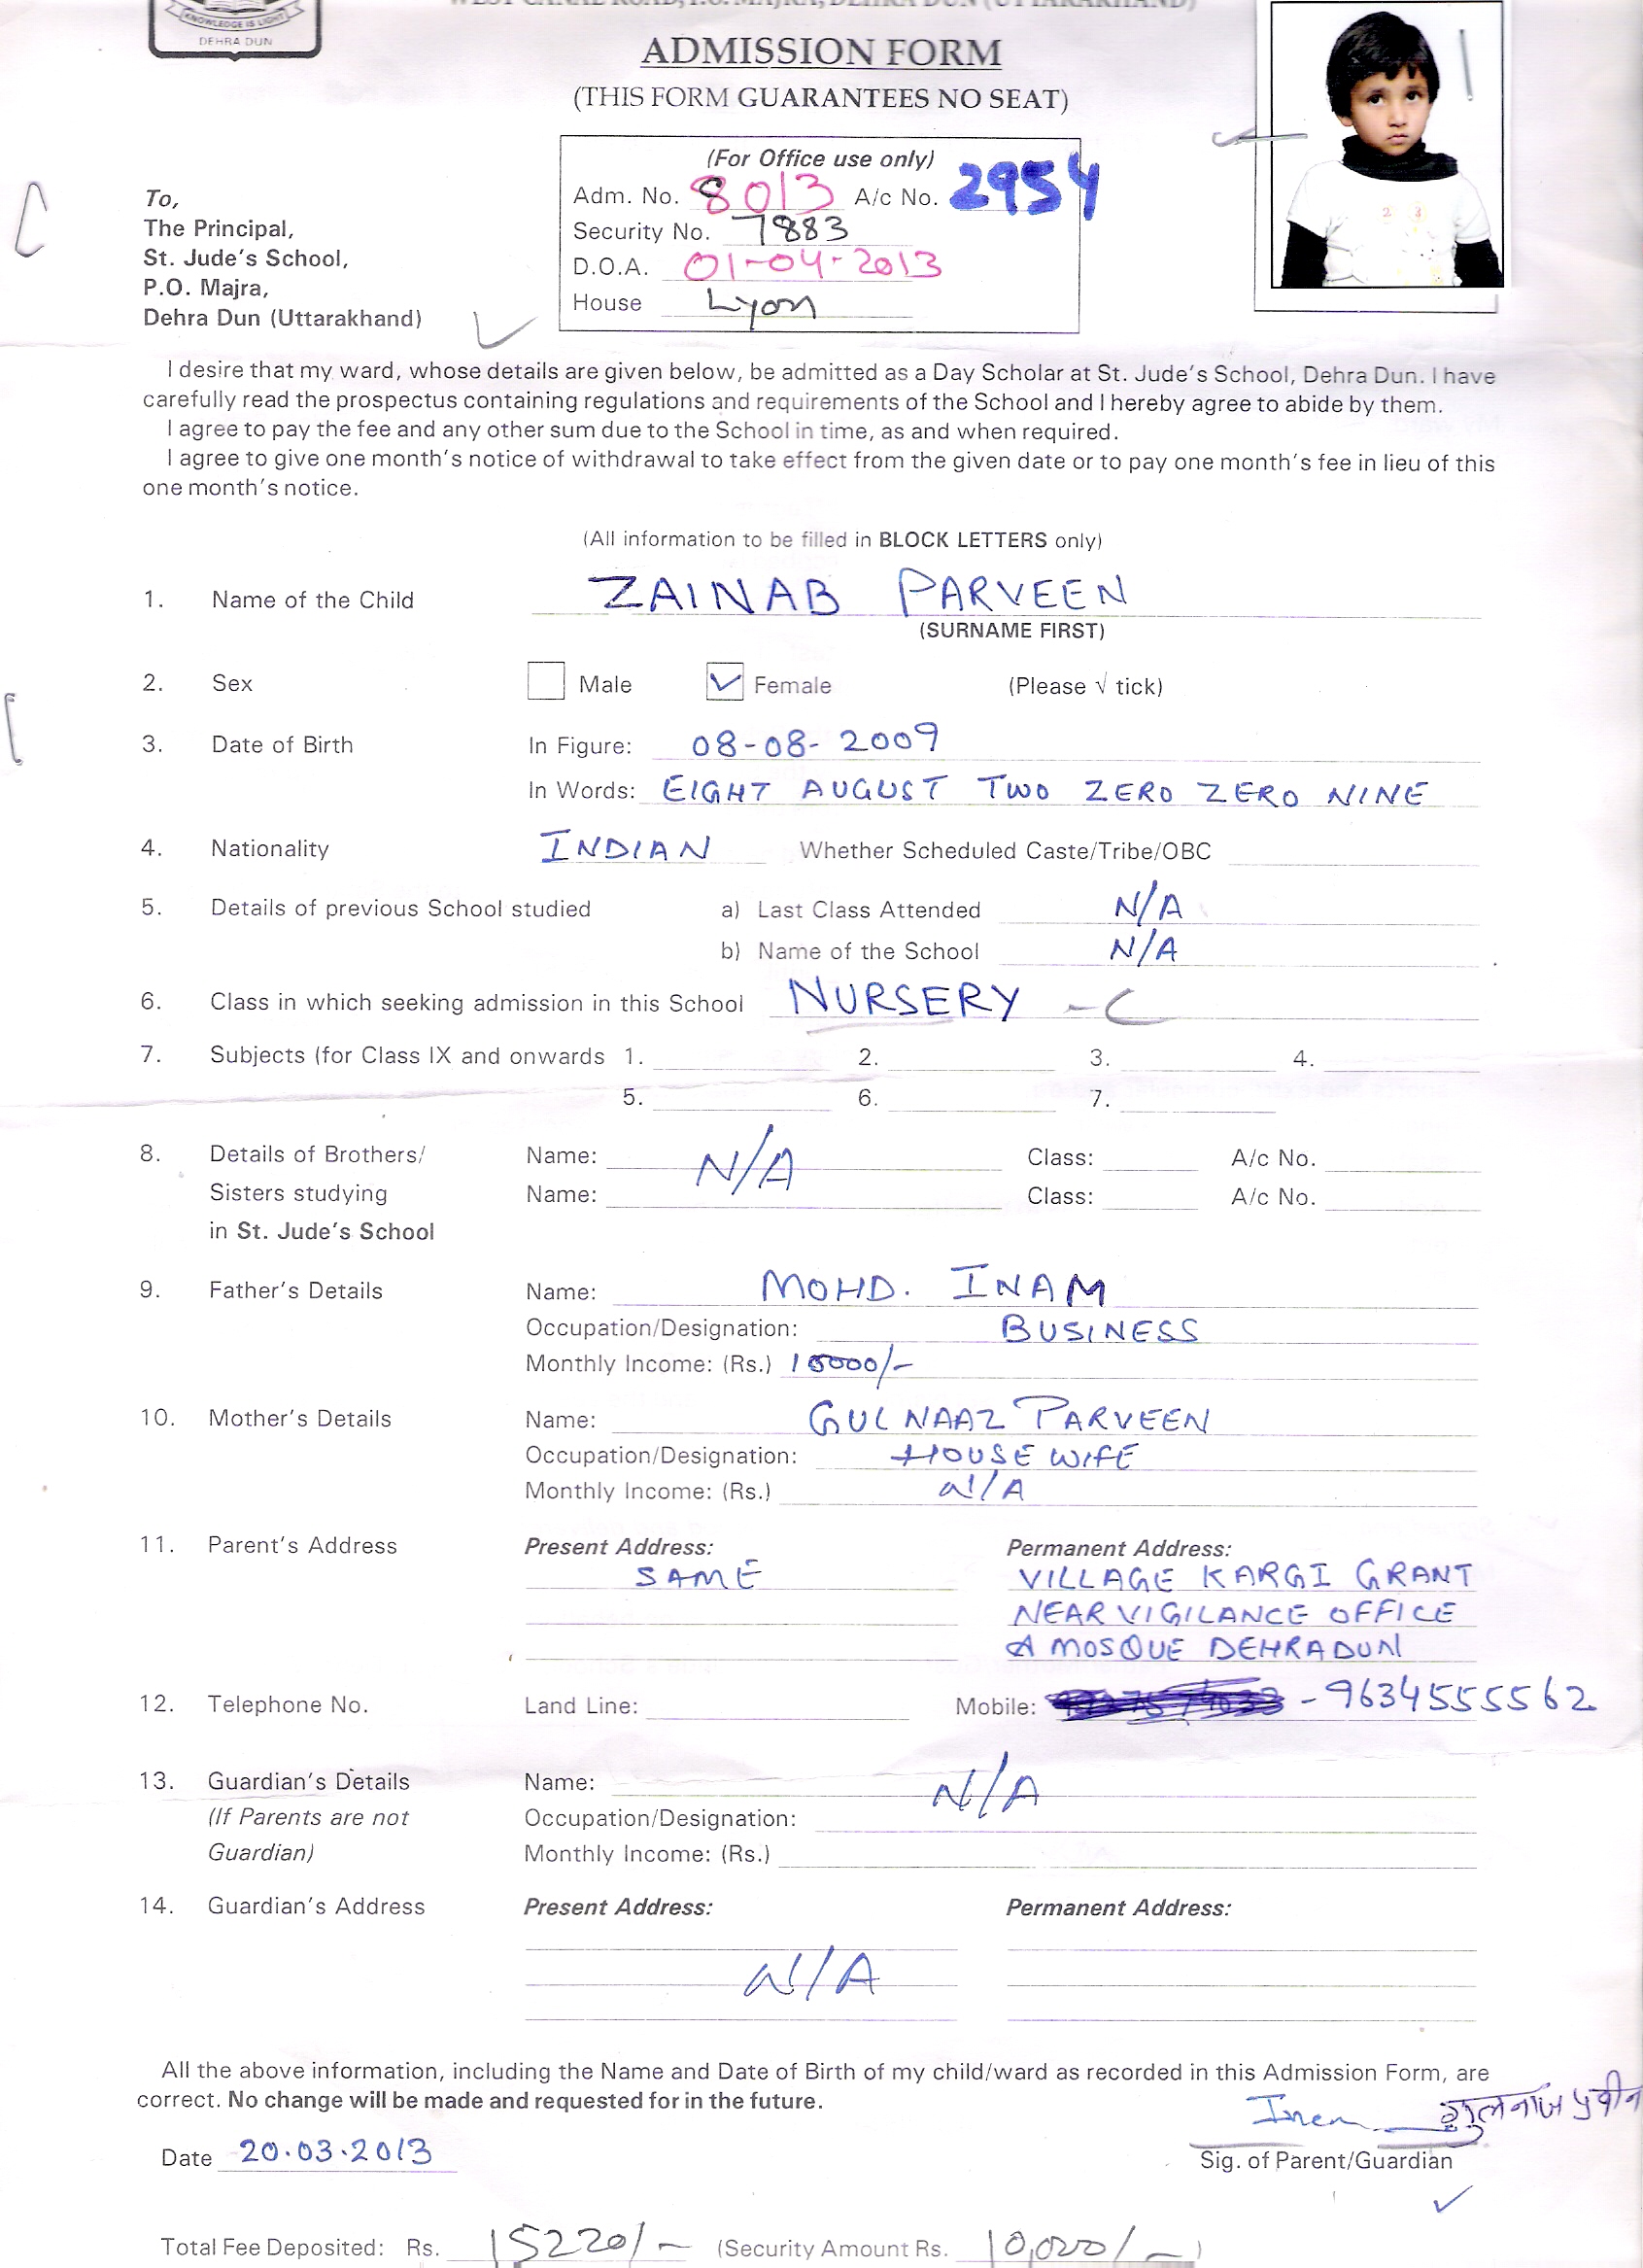 KNOWLEDGE IS LIGHT
DEHRA DUN
WEST CANAL ROAD, P.O. MAJRA, DEHRA DUN (UTTARAKHAND)
ADMISSION FORM
(THIS FORM GUARANTEES NO SEAT)
(For Office use only)
Adm. No. 8013 A/c No. 2954
Security No. 7883
D.O.A. 01-04-2013
House Lyon
To,
The Principal,
St. Jude's School,
P.O. Majra,
Dehra Dun (Uttarakhand)
I desire that my ward, whose details are given below, be admitted as a Day Scholar at St. Jude's School, Dehra Dun. I have
carefully read the prospectus containing regulations and requirements of the School and I hereby agree to abide by them.
I agree to pay the fee and any other sum due to the School in time, as and when required.
I agree to give one month's notice of withdrawal to take effect from the given date or to pay one month's fee in lieu of this
one month's notice.
(All information to be filled in BLOCK LETTERS only)
1. Name of the Child ZAINAB PARVEEN
(SURNAME FIRST)
2. Sex Male Female (Please √ tick)
3. Date of Birth In Figure: 08-08-2009
In Words: EIGHT AUGUST TWO ZERO ZERO NINE
4. Nationality INDIAN Whether Scheduled Caste/Tribe/OBC
5. Details of previous School studied a) Last Class Attended N/A
b) Name of the School N/A
6. Class in which seeking admission in this School NURSERY - C
7. Subjects (for Class IX and onwards 1. 2. 3. 4.
5. 6. 7.
8. Details of Brothers/ Name: N/A Class: A/c No.
Sisters studying Name: Class: A/c No.
in St. Jude's School
9. Father's Details Name: MOHD. INAM
Occupation/Designation: BUSINESS
Monthly Income: (Rs.) 15000/-
10. Mother's Details Name: GULNAAZ PARVEEN
Occupation/Designation: HOUSE WIFE
Monthly Income: (Rs.) N/A
11. Parent's Address Present Address: Permanent Address:
SAME VILLAGE KARGI GRANT
NEAR VIGILANCE OFFICE
& MOSQUE DEHRADUN
12. Telephone No. Land Line: Mobile: - 9634555562
13. Guardian's Details Name: N/A
(If Parents are not Occupation/Designation:
Guardian) Monthly Income: (Rs.)
14. Guardian's Address Present Address: Permanent Address:
N/A
All the above information, including the Name and Date of Birth of my child/ward as recorded in this Admission Form, are
correct. No change will be made and requested for in the future.
Inam गुलनाज प्रवीन
Date 20.03.2013 Sig. of Parent/Guardian
Total Fee Deposited: Rs. 15220/- (Security Amount Rs. 10,000/-)